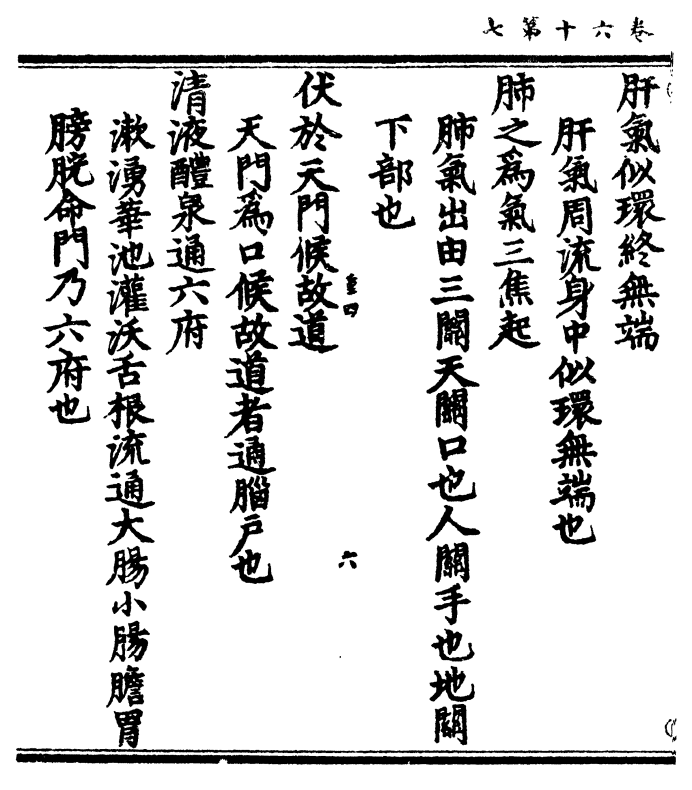 卷六十第七
肝氣似環終無端
肝氣周流身中似環無端也
肺之為氣三焦起
肺氣出由三關天關口也人關手也地關
下部也
重四
六
伏於天門候故道
天門為口候故道者通腦戶也
清液醴泉通六府
漱湧華池灌沃舌根流通大腸小腸膽胃
膀胱命門乃六府也